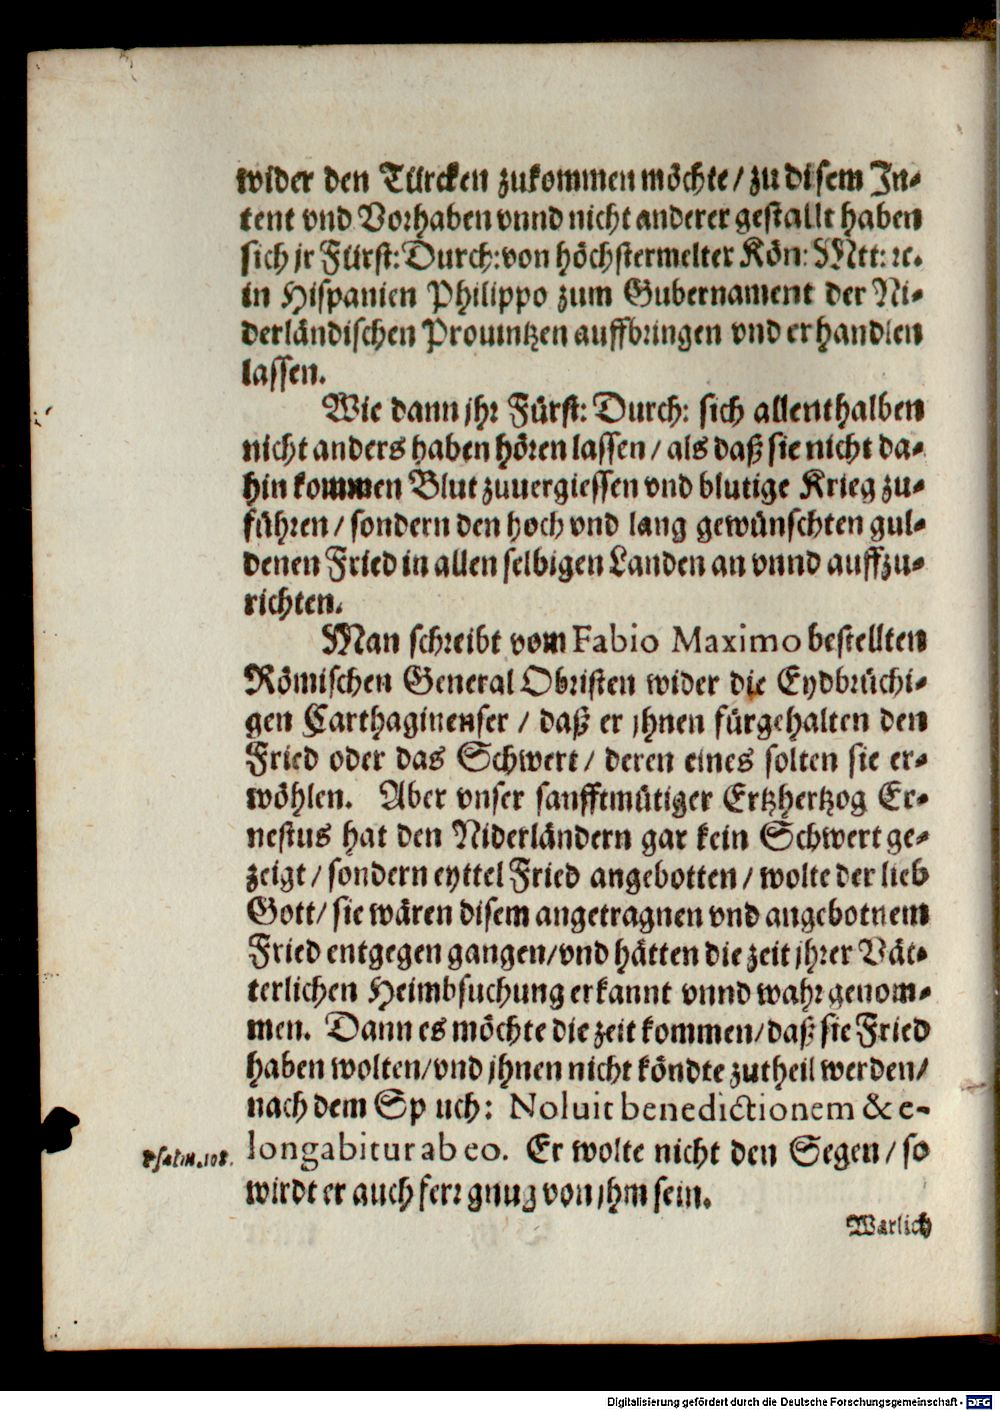 wider den Türcken zukommen möchte / zu disem In-
tent vnd Vorhaben vnnd nicht anderer gestallt haben
sich jr Fürst: Durch: von höchstermelter Kön: Mtt: ꝛc.
in Hispanien Philippo zum Gubernament der Ni-
derländischen Prouintzen auffbringen vnd erhandlen
lassen.
Wie dann jhr Fürst: Durch: sich allenthalben
nicht anders haben hören lassen / als daß sie nicht da-
hin kommen Blut zuuergiessen vnd blutige Krieg zu-
führen / sondern den hoch vnd lang gewünschten gul-
denen Fried in allen selbigen Landen an vnnd auffzu-
richten.
Man schreibt vom Fabio Maximo bestellten
Römischen General Obristen wider die Eydbrüchi-
gen Carthaginenser / daß er jhnen fürgehalten den
Fried oder das Schwert / deren eines solten sie er-
wöhlen. Aber vnser sanfftmütiger Ertzhertzog Er-
nestus hat den Niderländern gar kein Schwert ge-
zeigt / sondern eyttel Fried angebotten / wolte der lieb
Gott / sie wären disem angetragnen vnd angebotnem
Fried entgegen gangen / vnd hätten die zeit jhrer Vät-
terlichen Heimbsuchung erkannt vnnd wahrgenom-
men. Dann es möchte die zeit kommen / daß sie Fried
haben wolten / vnd jhnen nicht köndte zutheil werden /
nach dem Spruch: Noluit benedictionem & e-
Psalm. 108. longabitur ab eo. Er wolte nicht den Segen / so
wirdt er auch ferr gnug von jhm sein.
Warlich
Digitalisierung gefördert durch die Deutsche Forschungsgemeinschaft - DFG